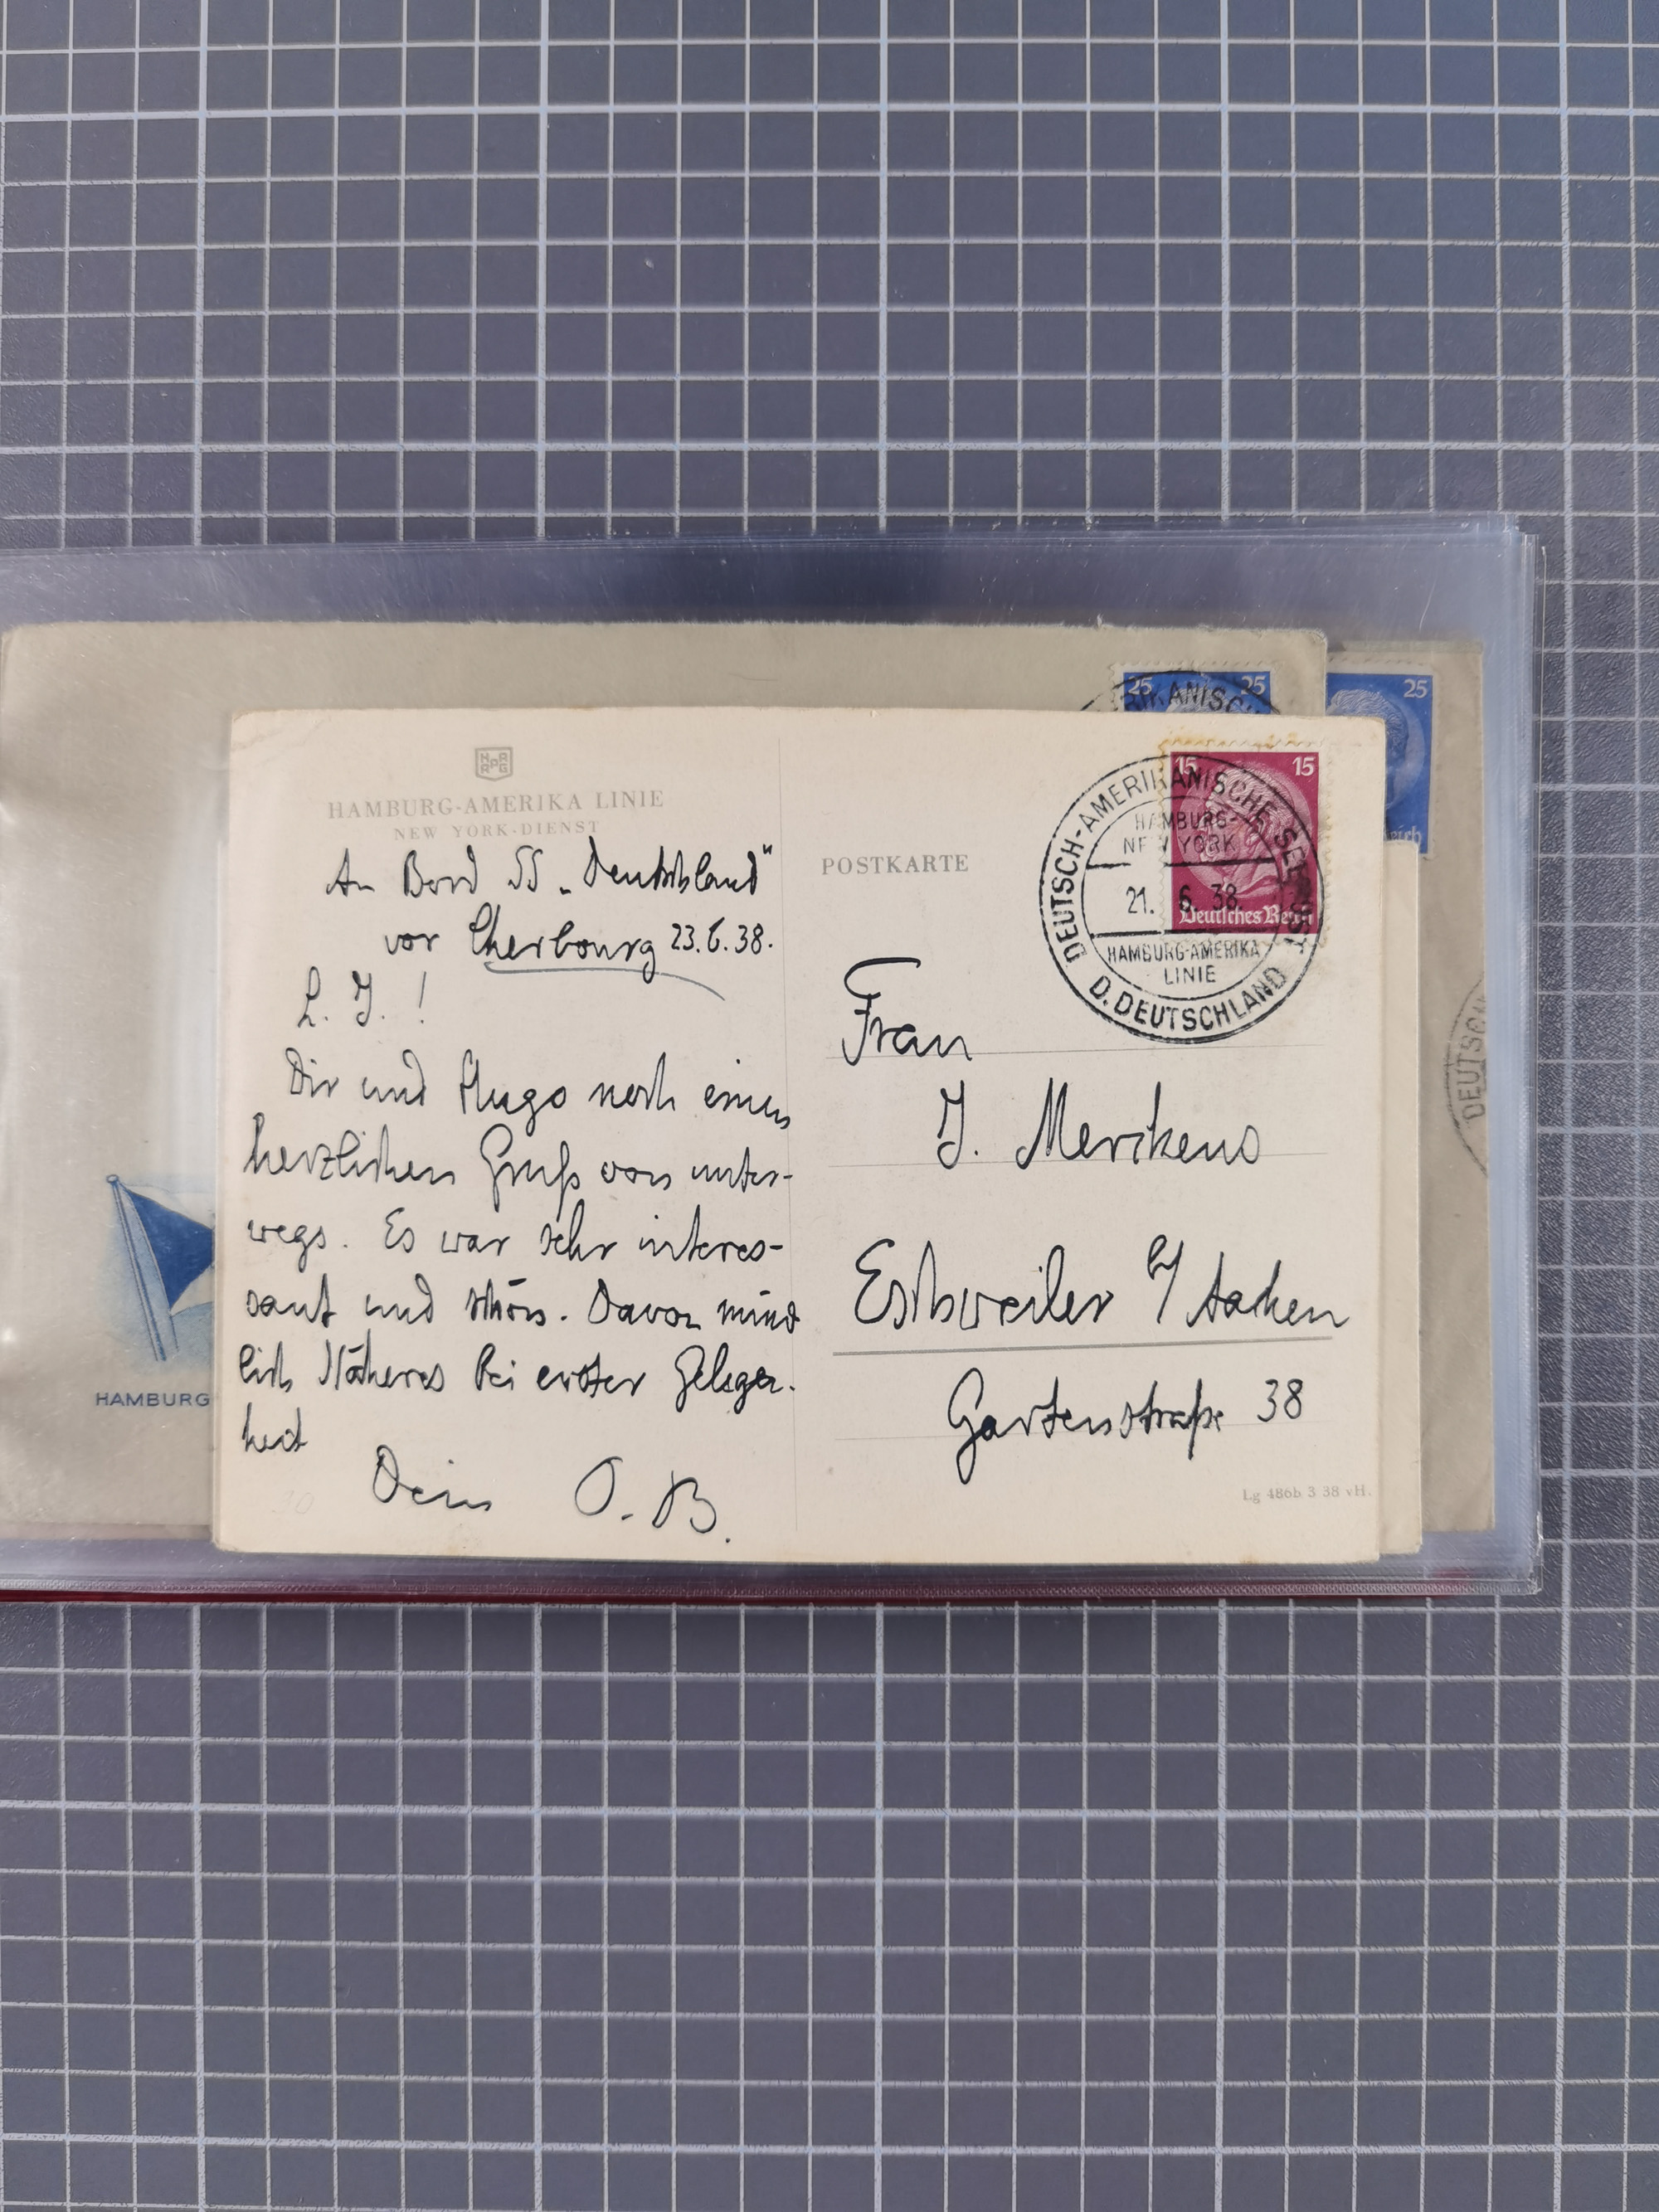 HAPAG
HAMBURG-AMERIKA LINIE
NEW YORK-DIENST
An Bord SS „Deutschland"
vor Cherbourg 23.6.38.
L. J. !
Dir und Hugo noch einen
herzlichen Gruß von unter-
wegs. Es war sehr interes-
sant und schön. Davon münd
lich Näheres bei erster Gelegen-
heit
Dein O. B.
POSTKARTE
15 15
Deutsches Reich
DEUTSCH-AMERIKANISCHE SEEPOST
HAMBURG-
NEW YORK
21. 6. 38.
HAMBURG-AMERIKA
LINIE
D. DEUTSCHLAND
Frau
J. Merikens
Eschweiler b/ Aachen
Gartenstraße 38
Lg 486b 3 38 vH.
25 25
RIKANISCH
25
eich
DEUTSCH
HAMBURG